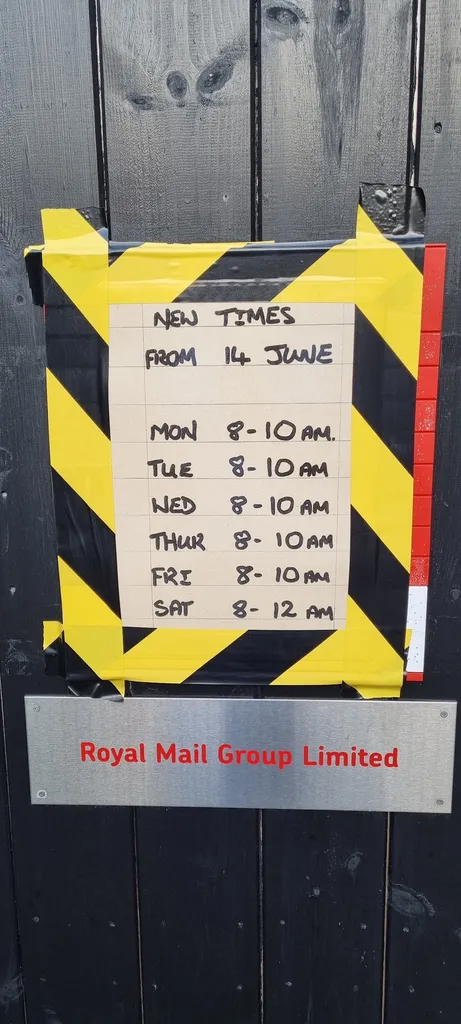 NEW TIMES
FROM 14 JUNE
MON 8-10 AM.
TUE 8-10 AM
WED 8-10 AM
THUR 8-10 AM
FRI 8-10 AM
SAT 8-12 AM
Royal Mail Group Limited